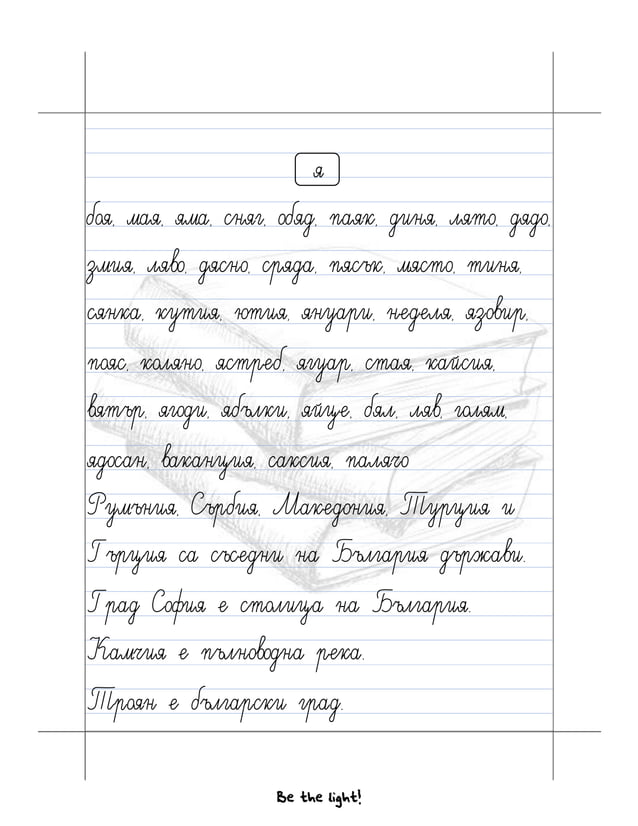 я
боя, мая, яма, сняг, обяд, паяк, диня, лято, дядо,
змия, ляво, дясно, сряда, пясък, място, тиня,
сянка, кутия, ютия, януари, неделя, язовир,
пояс, коляно, ястреб, ягуар, стая, кайсия,
вятър, ягоди, ябълки, яйце, бял, ляв, голям,
ядосан, ваканция, саксия, палячо
Румъния, Сърбия, Македония, Турция и
Гърция са съседни на България държави.
Град София е столица на България.
Камчия е пълноводна река.
Троян е български град.
Be the light!